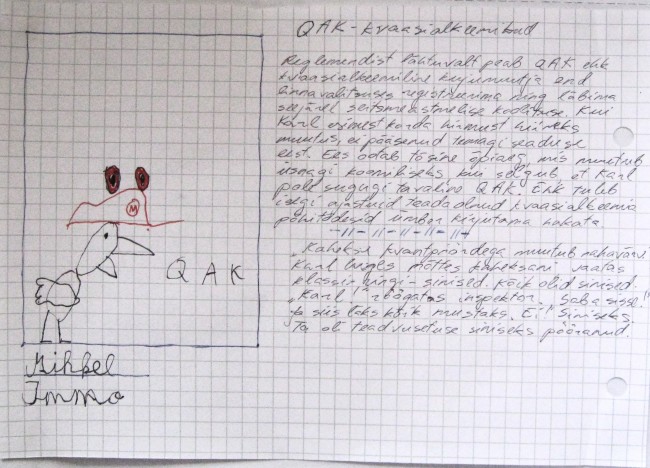 QAK - kvaasialkeemikud
Reglemendist lähtuvalt peab QAK ehk
kvaasialkeemiline kujumuutja end
linnavalitsuses registreerima ning läbima
seejärel seitsmeastmelise koolituse. Kui
Karl esimest korda hirmust hiireks
muutus, ei pääsenud temagi seaduse
eest. Ees ootab tõsine õpiaeg, mis muutub
üsnagi koomiliseks, kui selgub, et Karl
pole sugugi tavaline QAK. Ehk tuleb
isegi ajastuid teada olnud kvaasialkeemia
põhitõdesid ümber kirjutama hakata.
-11-11-11-11-
"Kaheksa kvantpöördega muutub nahavärv.
Karl luges mõttes kaheksani vaatas
klassi ringi - sinised. Kõik olid sinised.
"Karl!" röögatas inspektor. Saba sisse!"
Ja siis läks kõik mustaks. Ei! Siniseks.
Ta oli teadvusetuse siniseks pööranud.
M
QAK
Mihkel
Immo